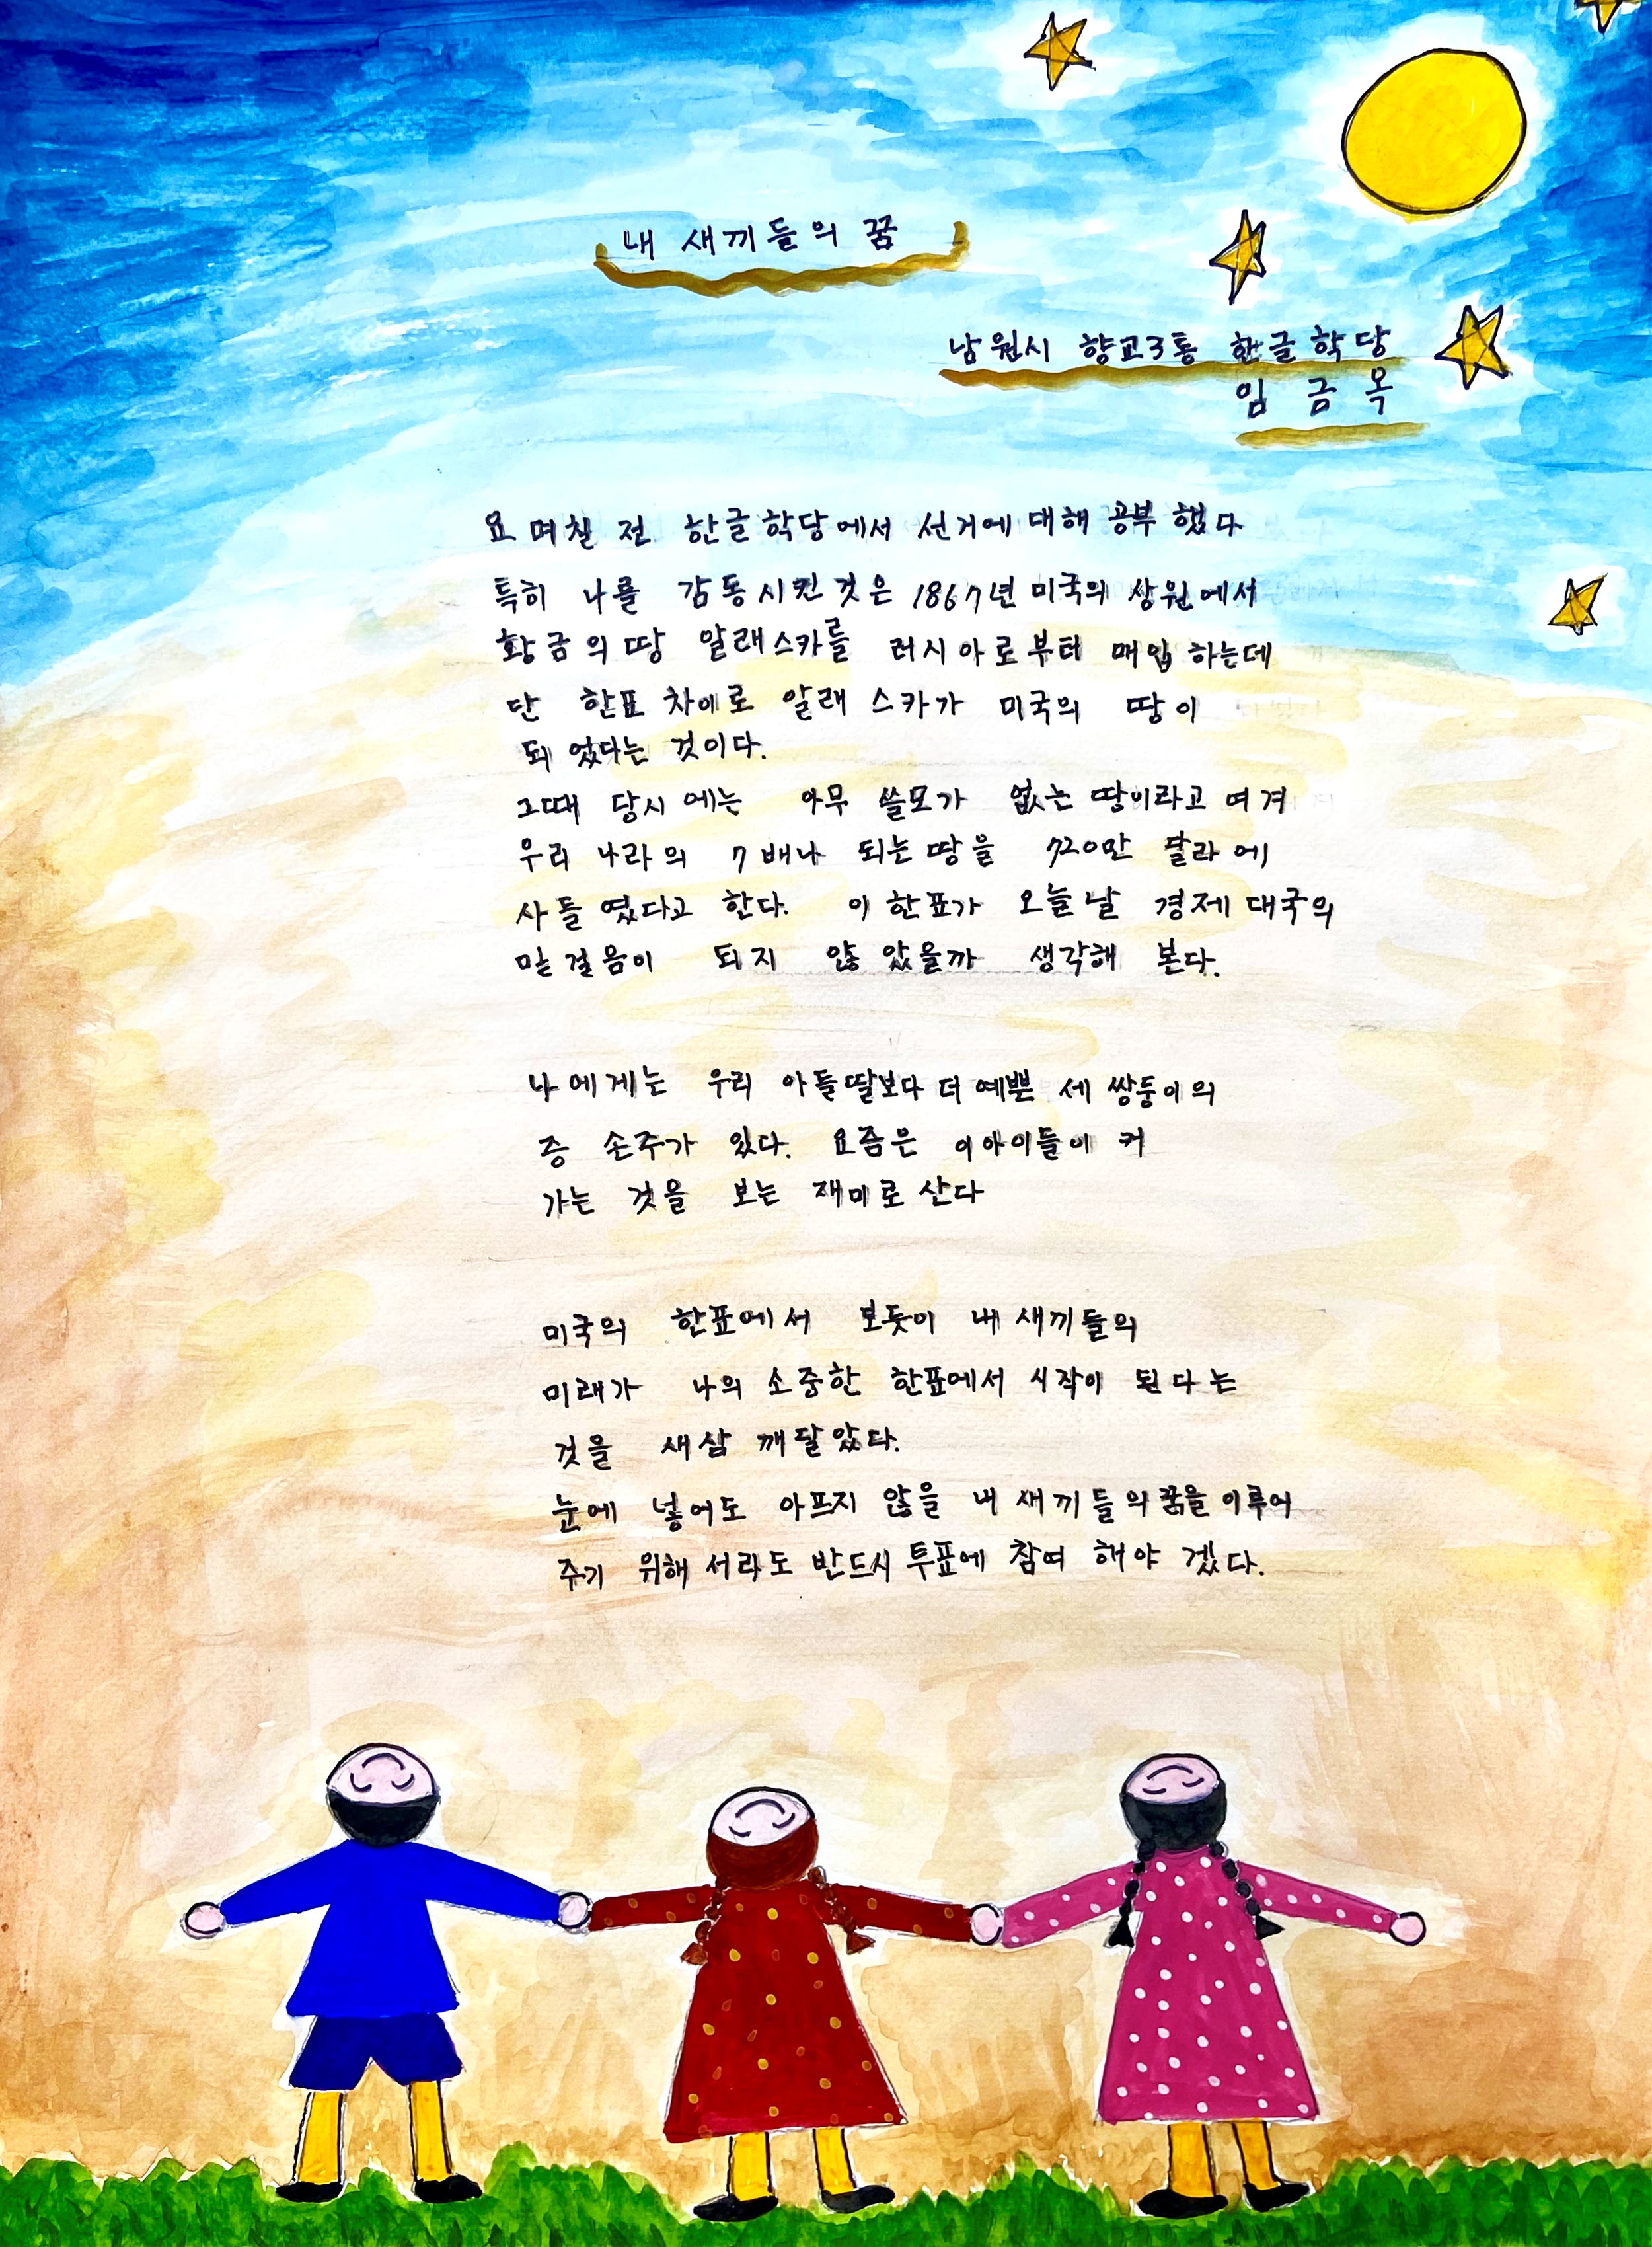 내 새끼들의 꿈
남원시 향교3통 한글학당
임 금 옥
요 며칠 전 한글 학당에서 선거에 대해 공부 했다
특히 나를 감동시킨 것은 1867년 미국의 상원에서
황금의 땅 알래스카를 러시아로부터 매입 하는데
단 한표 차이로 알래 스카가 미국의 땅이
되 었다는 것이다.
그때 당시 에는 아무 쓸모가 없는 땅이라고 여겨
우리 나라의 7배나 되는 땅을 720만 달라에
사들 였다고 한다. 이 한표가 오늘날 경제 대국의
밑 걸음이 되지 않 았을까 생각해 본다.
나에게는 우리 아들딸보다 더 예쁜 세 쌍둥이의
증 손주가 있다. 요즘은 이아이들이 커
가는 것을 보는 재미로 산다
미국의 한표에서 보듯이 내 새끼들의
미래가 나의 소중한 한표에서 시작이 된다는
것을 새삼 깨달았다.
눈에 넣어도 아프지 않을 내 새끼들의 꿈을 이루어
주기 위해 서라도 반드시 투표에 참여 해야 겠다.